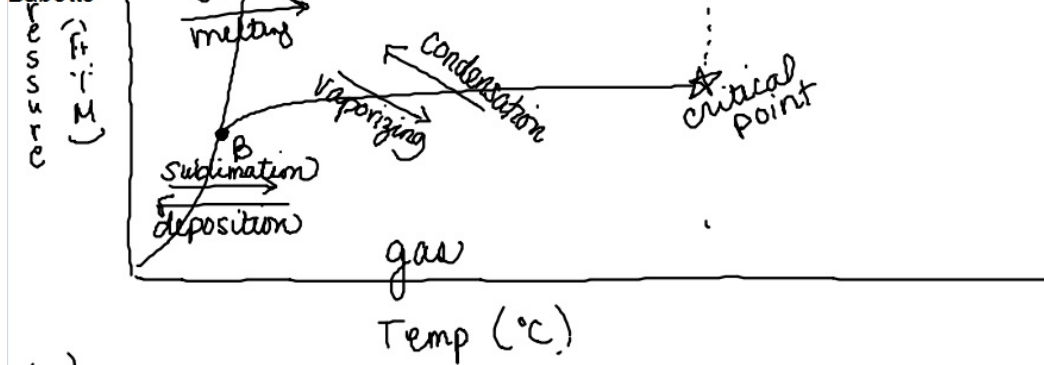 ressure
(ATM)
melting
condensation
vaporizing
critical
point
B
sublimation
deposition
gas
Temp (°C)